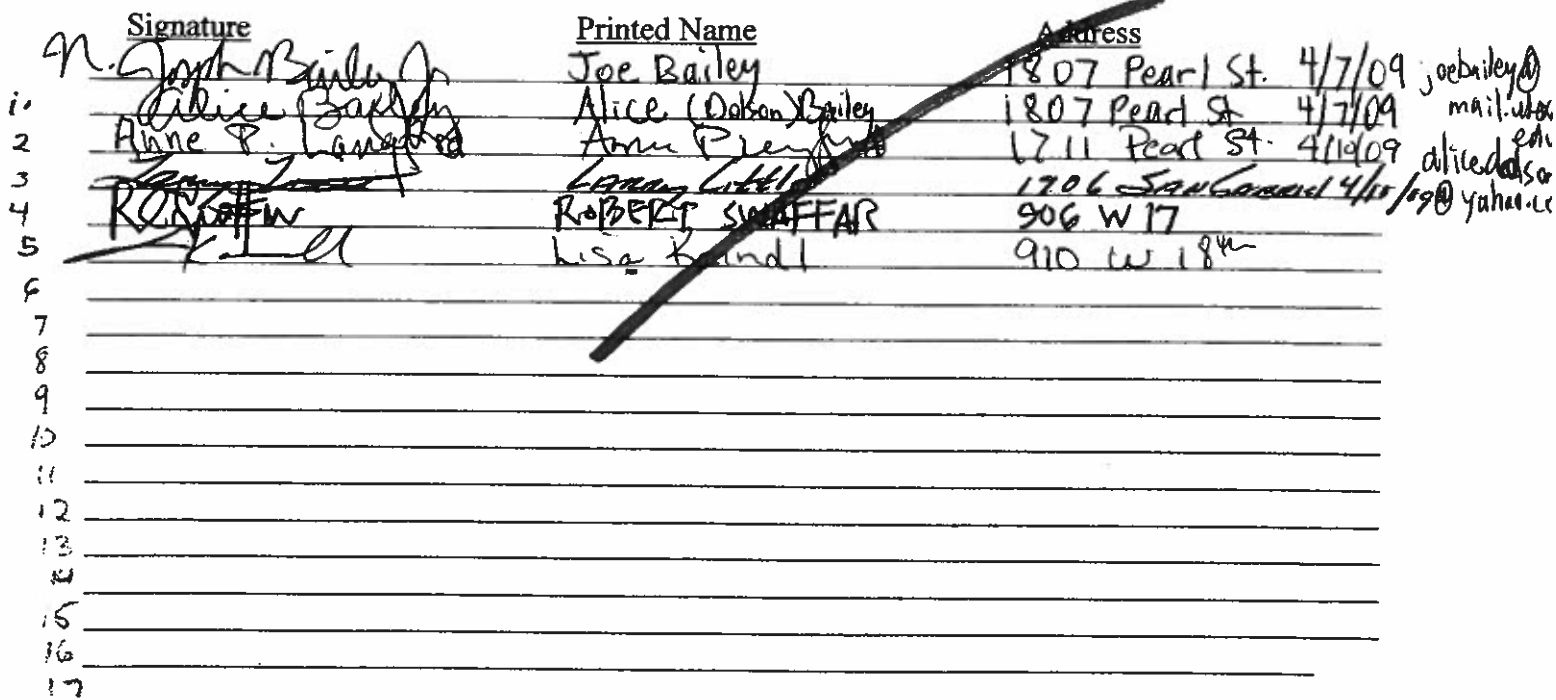 Signature Printed Name Address
N. Joseph Bailey Jr Joe Bailey 1807 Pearl St. 4/7/09 joebailey@
1. Alice Bailey Alice (Dotson) Bailey 1807 Pearl St 4/7/09 mail.utexas
edu
2 Anne P. Langford Anne 1711 Pearl St. 4/10/09
3 Larry Little 1906 San Gabriel 4/10/09 @yahoo.co
4 ROBERT SWAFFAR 906 W 17
5 Lisa Kaindl 910 W 18th
6
7
8
9
10
11
12
13
14
15
16
17